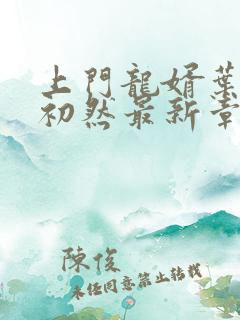 上門龍婿葉
初然最新章
陳俊
未經同意禁止轉載